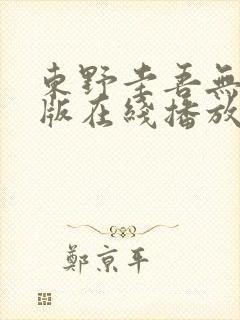 東野圭吾無
版在綫播放
鄭京平